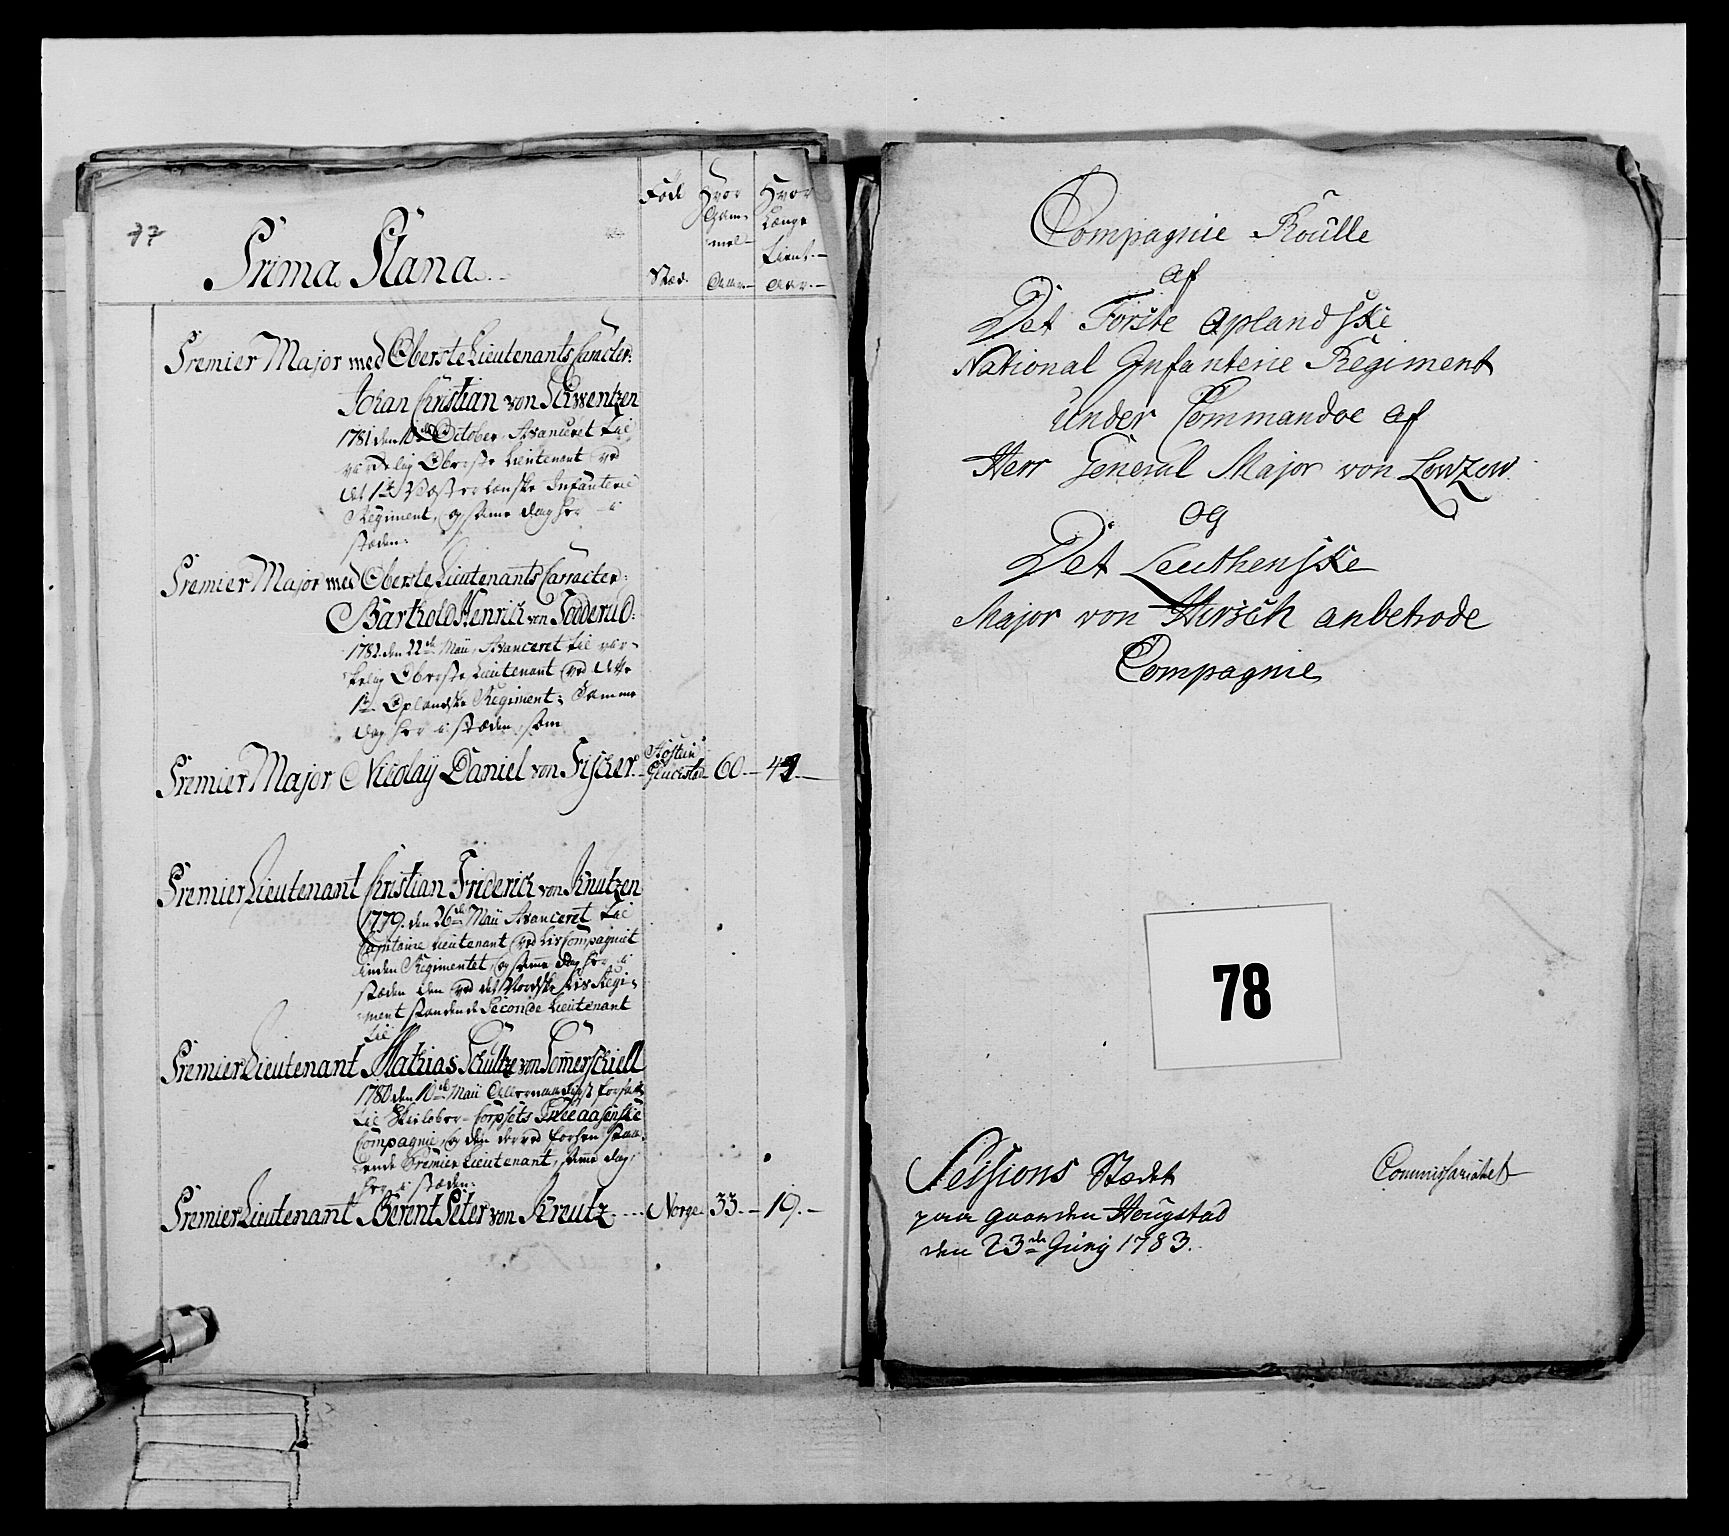 77
Prima Plana
Føde Hvor Hvor
Gam- Længe
mel Tient.
Stæd. Aar. Aar.
Premier Major med ObersteLieutenants Caracter:
Johan Christian von Schwentzen
1781 den 10de October Avanceret til
virkelig Oberste Lieutenant ved
det 1te Infanterie
Regiment, og samme dag her i
stæden.
Premier Major med ObersteLieutenants Carracter:
Barthold Henrich von
1782. den 22de Maii, Avanceret til vir-
kelig Oberste Lieutenant ved dette
1te Oplandske Regiment; Samme
dag her i stæden, som
Premier Major Nicolaÿ Daniel von Fischer. Holsteen Glucstad 60.– 42.–
Premier Lieutenant Christian Friderich von Knutzen
1779. den 26de Maii Avanceret til
Capitaine Lieutenant ved Liv Compagniet
inden Regimentet, og samme dag her i
stæden den ved det Norske Liv Regi-
ment standende Seconde Lieutenant
til
Premier Lieutenant Mathias Schultz von Sommerschiell
1780 den 10de Maii Allernaadigst forsat
til Skieløber-Corpsets
Compagnie, og den derved forhen staa-
ende Premier Lieutenant, samme dag
her i stæden:
Premier Lieutenant Berent Peter von Kreutz.... Norge 33.– 19.–
Compagnie Roulle
af
Det Første Oplandske
National Infanterie Regiment
under Commandoe af
Herr General Major von Lowzow
og
Det Leuthenske
Major von Hirsch anbetrode
Compagnie
78
Sessions Stædet
paa gaarden Hougstad
den 23de Junij 1783.
Commissariatet